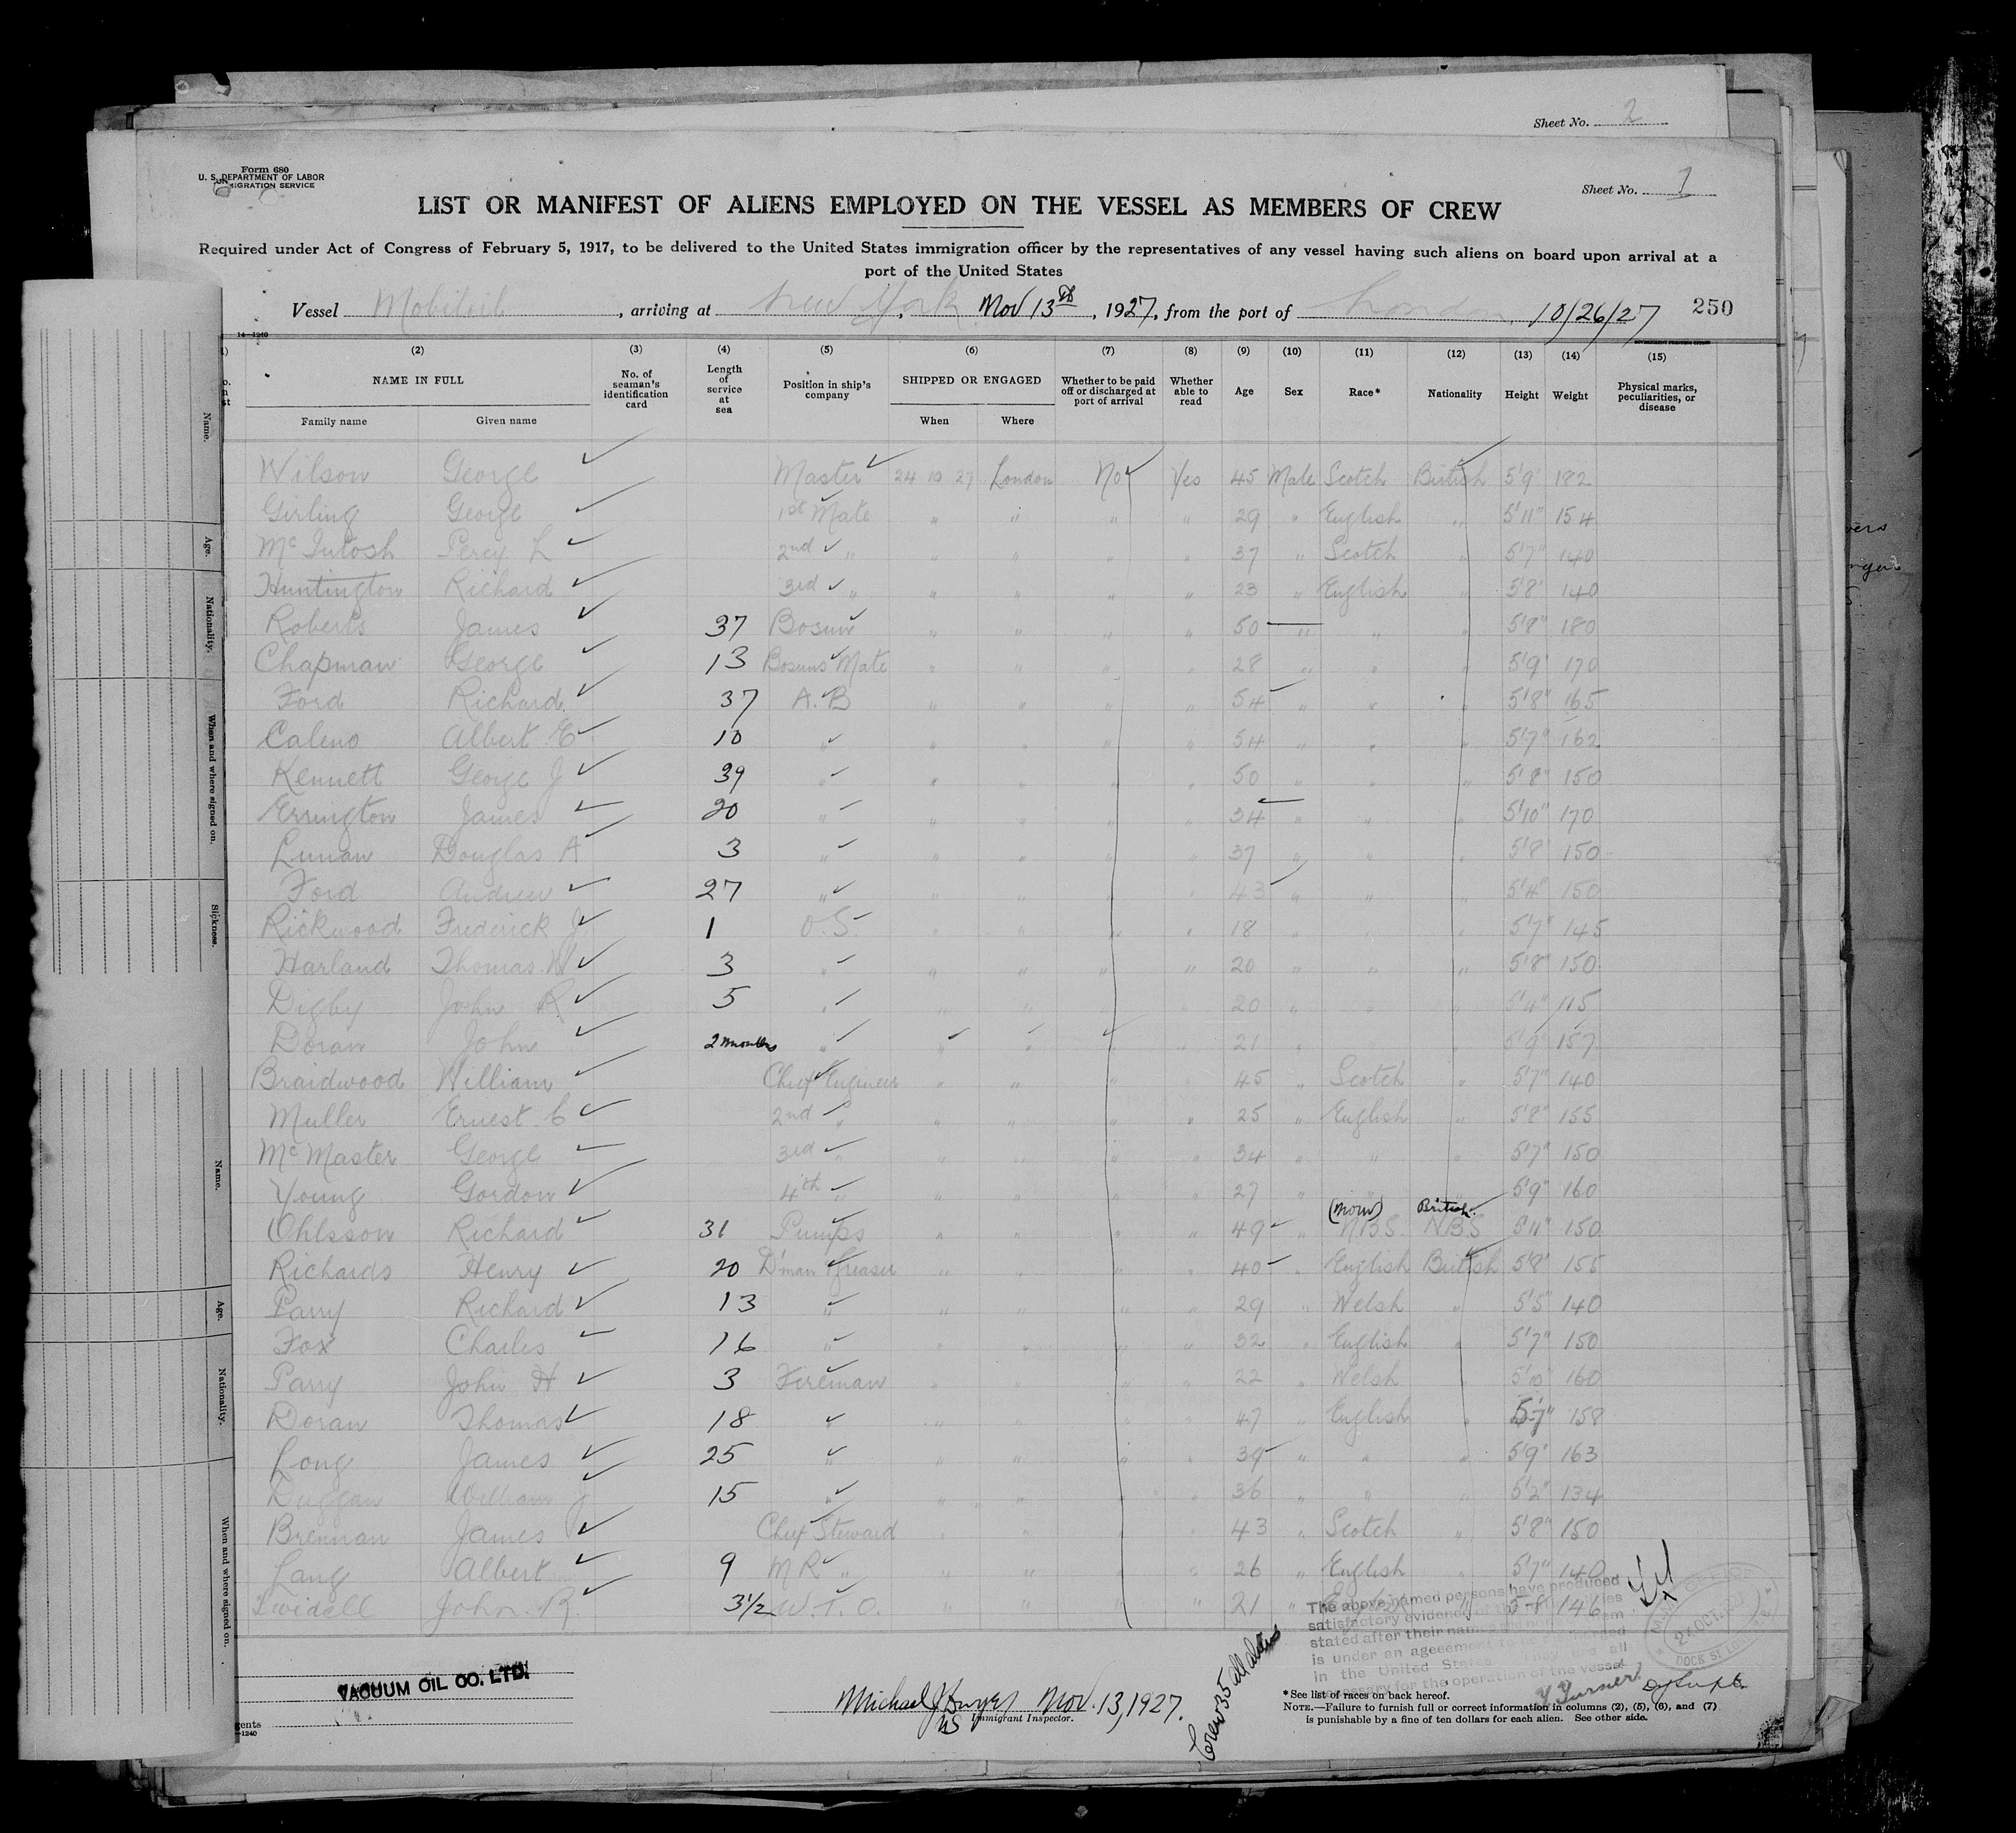 Sheet No. 2
Form 680
U. S. DEPARTMENT OF LABOR
IMMIGRATION SERVICE
Sheet No. 1
LIST OR MANIFEST OF ALIENS EMPLOYED ON THE VESSEL AS MEMBERS OF CREW
Required under Act of Congress of February 5, 1917, to be delivered to the United States immigration officer by the representatives of any vessel having such aliens on board upon arrival at a
port of the United States
Vessel Mobiloil, arriving at New York, Nov 13th, 1927, from the port of London, 10/26/27 250
14—1240
(2) (3) (4) (5) (6) (7) (8) (9) (10) (11) (12) (13) (14) (15)
NAME IN FULL No. of seaman's identification card Length of service at sea Position in ship's company SHIPPED OR ENGAGED Whether to be paid off or discharged at port of arrival Whether able to read Age Sex Race* Nationality Height Weight Physical marks, peculiarities, or disease
Family name Given name When Where
Wilson George Master 24 10 27 London No Yes 45 Male Scotch British 5'9" 182
Girling George 1st Mate " " " " 29 " English " 5'11" 154
McIntosh Percy L 2nd " " " " " 37 " Scotch " 5'7" 140
Huntington Richard 3rd " " " " " 23 " English " 5'8" 140
Roberts James 37 Bosun " " " " 50 " " " 5'8" 180
Chapman George 13 Bosuns Mate " " " " 28 " " " 5'9" 170
Ford Richard 37 A.B " " " " 54 " " " 5'8" 165
Caleno Albert E 10 " " " " " 54 " " " 5'7" 162
Kennett George J 39 " " " " " 50 " " " 5'8" 150
Errington James 20 " " " " " 34 " " " 5'10" 170
Lunan Douglas A 3 " " " " " 37 " " " 5'8" 150
Ford Andrew 27 " " " " " 43 " " " 5'4" 150
Rickwood Frederick J 1 O.S. " " " " 18 " " " 5'7" 145
Harland Thomas W 3 " " " " " 20 " " " 5'8" 150
Digby John R 5 " " " " " 20 " " " 5'4" 115
Doran John 2 months " " " " " 21 " " " 5'9" 157
Braidwood William Chief Engineer " " " " 45 " Scotch " 5'7" 140
Muller Ernest C 2nd " " " " " 25 " English " 5'8" 155
McMaster George 3rd " " " " " 34 " " " 5'7" 150
Young Gordon 4th " " " " " 27 " " " 5'9" 160
(Now) British
Ohlsson Richard 31 Pumps " " " " 49 " NBS. NBS 5'11" 150
Richards Henry 20 D'man Greaser " " " " 40 " English British 5'8" 155
Parry Richard 13 " " " " " 29 " Welsh " 5'5" 140
Fox Charles 16 " " " " " 32 " English " 5'7" 150
Parry John H 3 Fireman " " " " 22 " Welsh " 5'10" 160
Doran Thomas 18 " " " " " 47 " English " 5'7" 158
Long James 25 " " " " " 39 " " " 5'9" 163
Duggan William J 15 " " " " " 36 " " " 5'2" 134
Brennan James Chief Steward " " " " 43 " Scotch " 5'8" 150
Lang Albert 9 M R " " " " " 26 " English " 5'7" 140
John R. 3½ W.T.O. " " " " 21 " " 5-8 146
The above named persons have produced
satisfactory evidence of
stated after their names
is under an agreement to
in the United States. They are all
necessary for the operation of the vessel
DOCK ST
VACUUM OIL CO. LTD.
Michael J Dwyer Nov. 13, 1927.
US Immigrant Inspector.
Crew 35 all aliens
Turner
*See list of races on back hereof.
NOTE.—Failure to furnish full or correct information in columns (2), (5), (6), and (7)
is punishable by a fine of ten dollars for each alien. See other side.
Name.
Age.
Nationality.
When and where signed on.
Sickness.
Name.
Age.
Nationality.
When and where signed on.